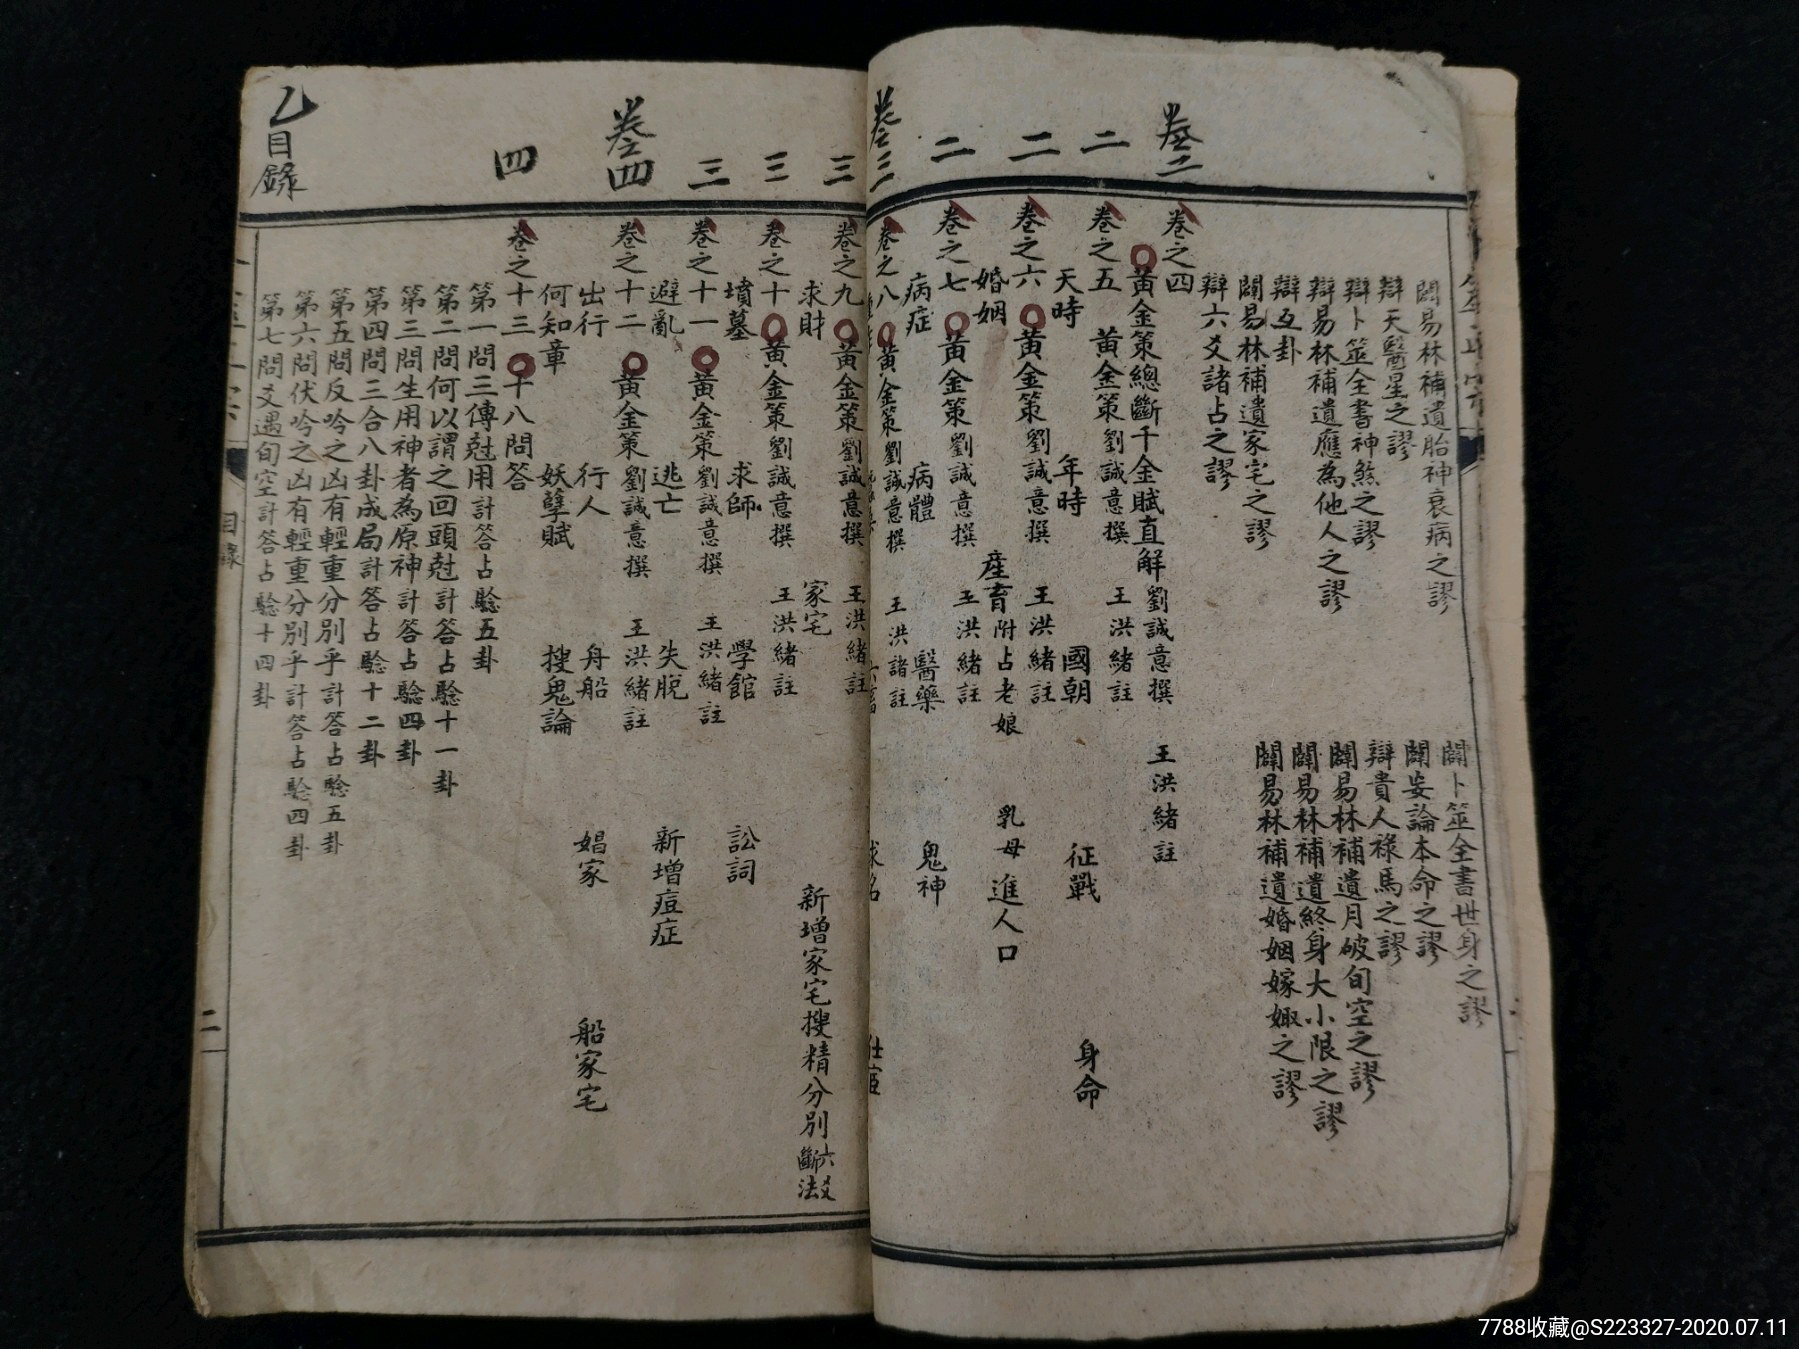 卷二
二
二
二
卷三
闢易林補遺胎神衰病之謬
闢卜筮全書世身之謬
辯天醫星之謬
闢妄論本命之謬
辯卜筮全書神煞之謬
辯貴人祿馬之謬
辯易林補遺應為他人之謬
闢易林補遺月破旬空之謬
辯互卦
闢易林補遺終身大小限之謬
闢易林補遺家宅之謬
闢易林補遺婚姻嫁娵之謬
辯六爻諸占之謬
卷之四
黃金策總斷千金賦直解 劉誠意撰 王洪緒註
卷之五 黃金策 劉誠意撰 王洪緒註
天時 年時 國朝 征戰 身命
卷之六 黃金策 劉誠意撰 王洪緒註
婚姻 產育附占老娘 乳母 進人口
卷之七 黃金策 劉誠意撰 王洪緒註
病症 病體 醫藥 鬼神
卷之八 黃金策 劉誠意撰 王洪諸註
求名 仕宦
三
三
三
卷四
四
乙
目錄
卷之九 黃金策 劉誠意撰 王洪緒註
求財 家宅 新增家宅搜精分別六爻斷法
卷之十 黃金策 劉誠意撰 王洪緒註
墳墓 求師 學館 訟詞
卷之十一 黃金策 劉誠意撰 王洪緒註
避亂 逃亡 失脫 新增痘症
卷之十二 黃金策 劉誠意撰 王洪緒註
出行 行人 舟船 娼家 船家宅
何知章 妖孽賦 搜鬼論
卷之十三 十八問答
第一問三傳尅用計答占驗五卦
第二問何以謂之回頭尅計答占驗十一卦
第三問生用神者為原神計答占驗四卦
第四問三合八卦成局計答占驗十二卦
第五問反吟之凶有輕重分別乎計答占驗五卦
第六問伏吟之凶有輕重分別乎計答占驗四卦
第七問爻遇旬空計答占驗十四卦
目錄
二
7788收藏@S223327-2020.07.11